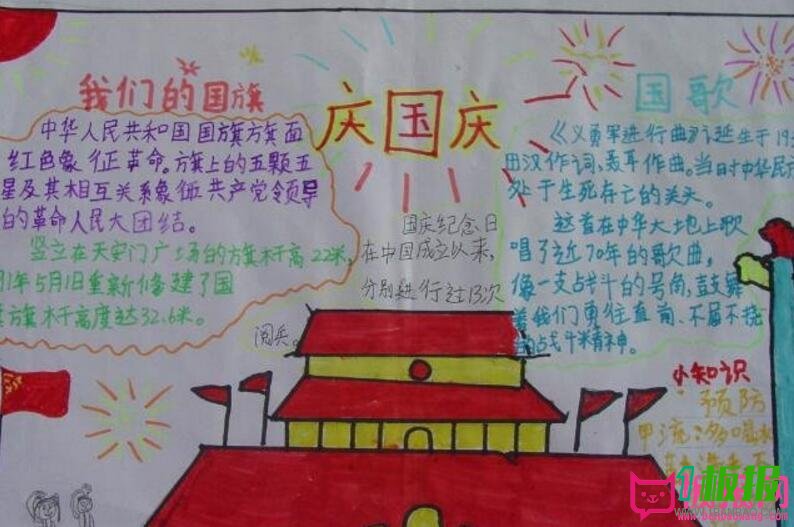 我们的国旗
中华人民共和国国旗旗面
红色象征革命。方旗上的五颗五
星及其相互关系象征共产党领导
的革命人民大团结。
竖立在天安门广场的方旗杆高22米,
91年5月1日重新修建了国
旗杆高度达32.6米。
庆国庆
国庆纪念日
在中国成立以来,
分别进行过13次
阅兵。
国歌
《义勇军进行曲》诞生于19
田汉作词、聂耳作曲。当日时中华民
处于生死存亡的关头。
这首在中华大地上歌
唱了近70年的歌曲,
像一支战斗的号角,鼓舞
着我们勇往直前、不屈不挠
的战斗精神。
小知识
预防
甲流:多喝水
板报网